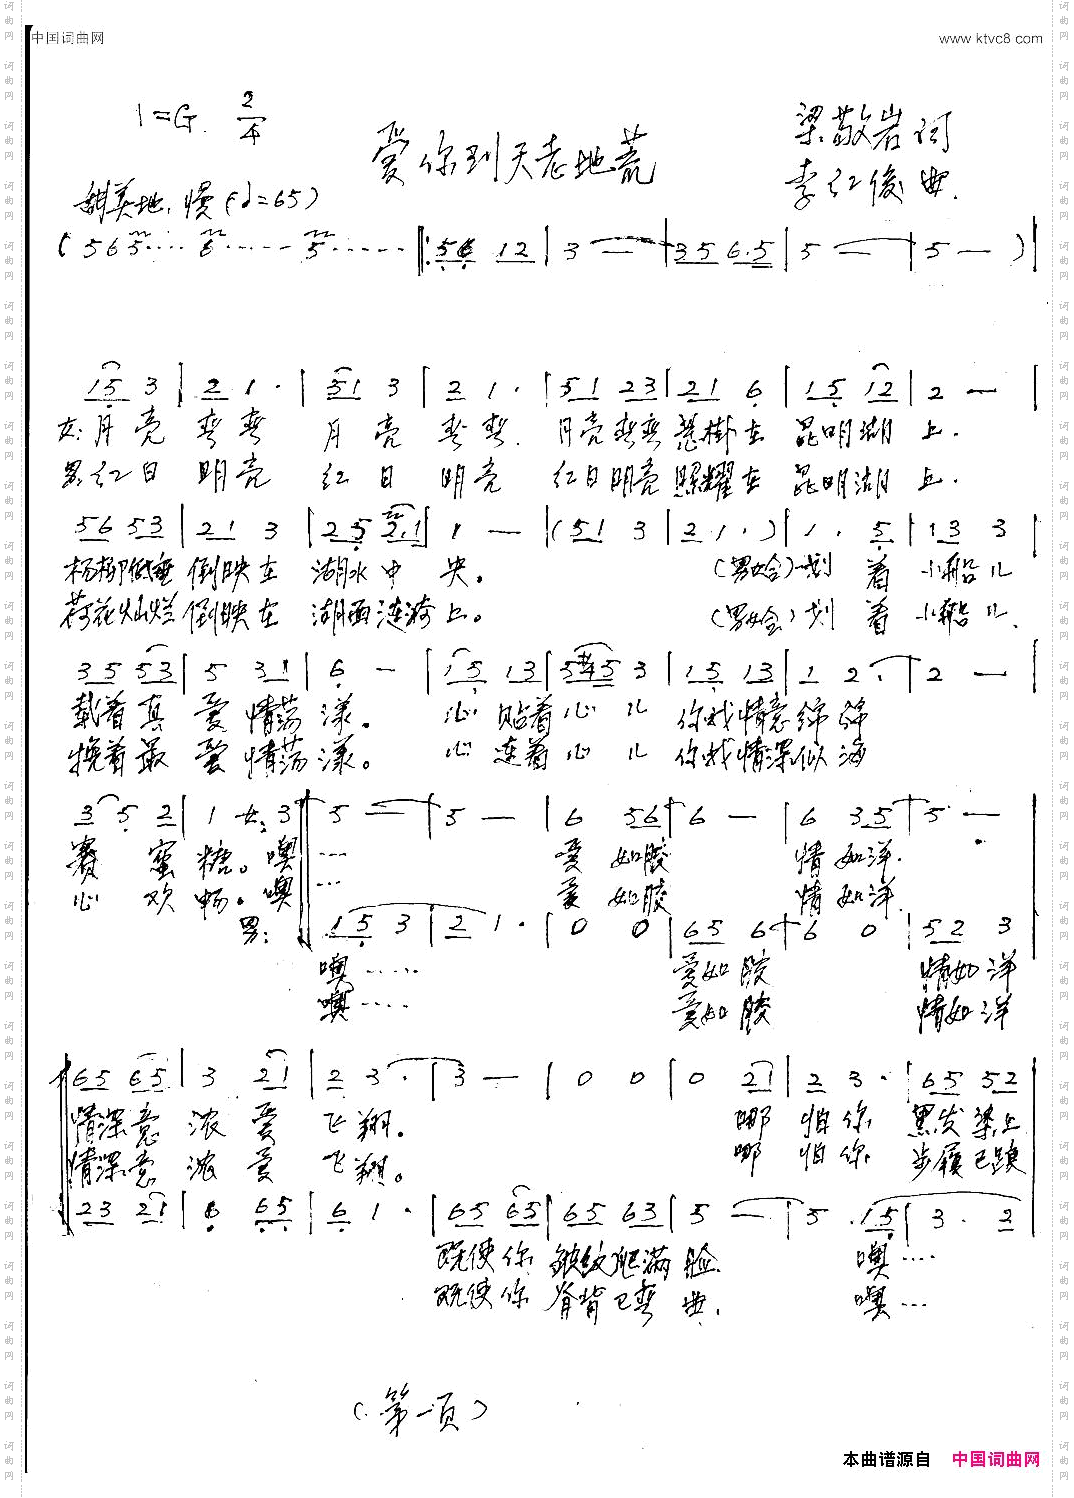 中国词曲网
www ktvc8 com
1=G 2/4
爱你到天老地荒
梁敬岩词
李红俊曲.
甜美地,慢(♩=65)
( 565···· 6······ 5······ ‖: 56 12 | 3 — | 35 6.5 | 5 — | 5 — ) |
15 3 | 2 1 · | 51 3 | 2 1 · | 51 23 | 21 6 | 15 12 | 2 — |
女:月亮弯弯 月亮弯弯. 月亮弯弯悬掛在昆明湖上.
男:红日明亮 红日明亮 红日明亮照耀在昆明湖上.
56 53 | 21 3 | 25 2.1 | 1 — | (51 3 | 21 · ) | 1 · 5 | 13 3
杨柳低垂倒映在湖水中央。 (男女合)划着小船儿
荷花灿烂倒映在湖面涟漪上。 (男女合)划着小船儿.
35 53 | 5 31 | 6 — | 15 13 | 5#45 3 | 15 13 | 1 2 · | 2 — |
载着真爱情荡漾。 心贴着心儿你我情意绵绵
挽着最爱情荡漾。 心连着心儿你我情深似海
3 5 2 | 1 女: 3 ‖ 5 — | 5 — | 6 56 | 6 — | 6 35 | 5 — |
赛蜜糖。噢··· 爱如胶 情如洋.
心欢畅.噢··· 爱如胶 情如洋.
男: 15 3 | 2 1 · | 0 0 | 65 6 | 6 0 | 52 3
噢····· 爱如胶 情如洋
噢···· 爱如胶 情如洋
65 65 | 3 21 | 2 3 · | 3 — | 0 0 | 0 21 | 2 3 · | 65 52
情深意浓爱飞翔。 哪怕你黑发染上
情深意浓爱飞翔。 哪怕你步履已踉
23 21 | 6 65 | 6 1 · | 65 65 | 65 63 | 5 — | 5 · 15 | 3 · 2
既使你皱纹爬满脸. 噢····
既使你脊背已弯曲. 噢···
(第一页)
本曲谱源自 中国词曲网